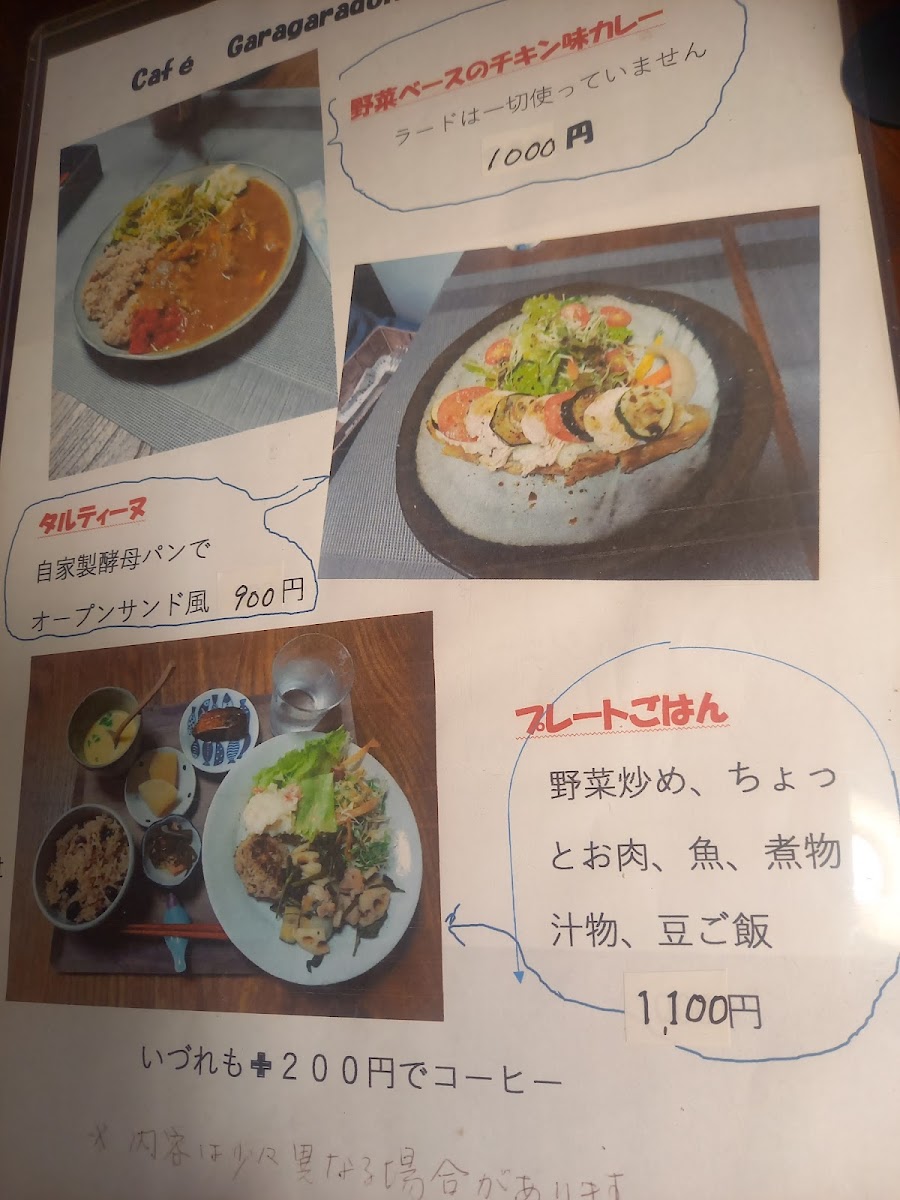 Café Garagarado
野菜ベースのチキン味カレー
ラードは一切使っていません
1000円
タルティーヌ
自家製酵母パンで
オープンサンド風 900円
プレートごはん
野菜炒め、ちょっ
とお肉、魚、煮物
汁物、豆ご飯
1,100円
いづれも+200円でコーヒー
*内容は少々異なる場合があります